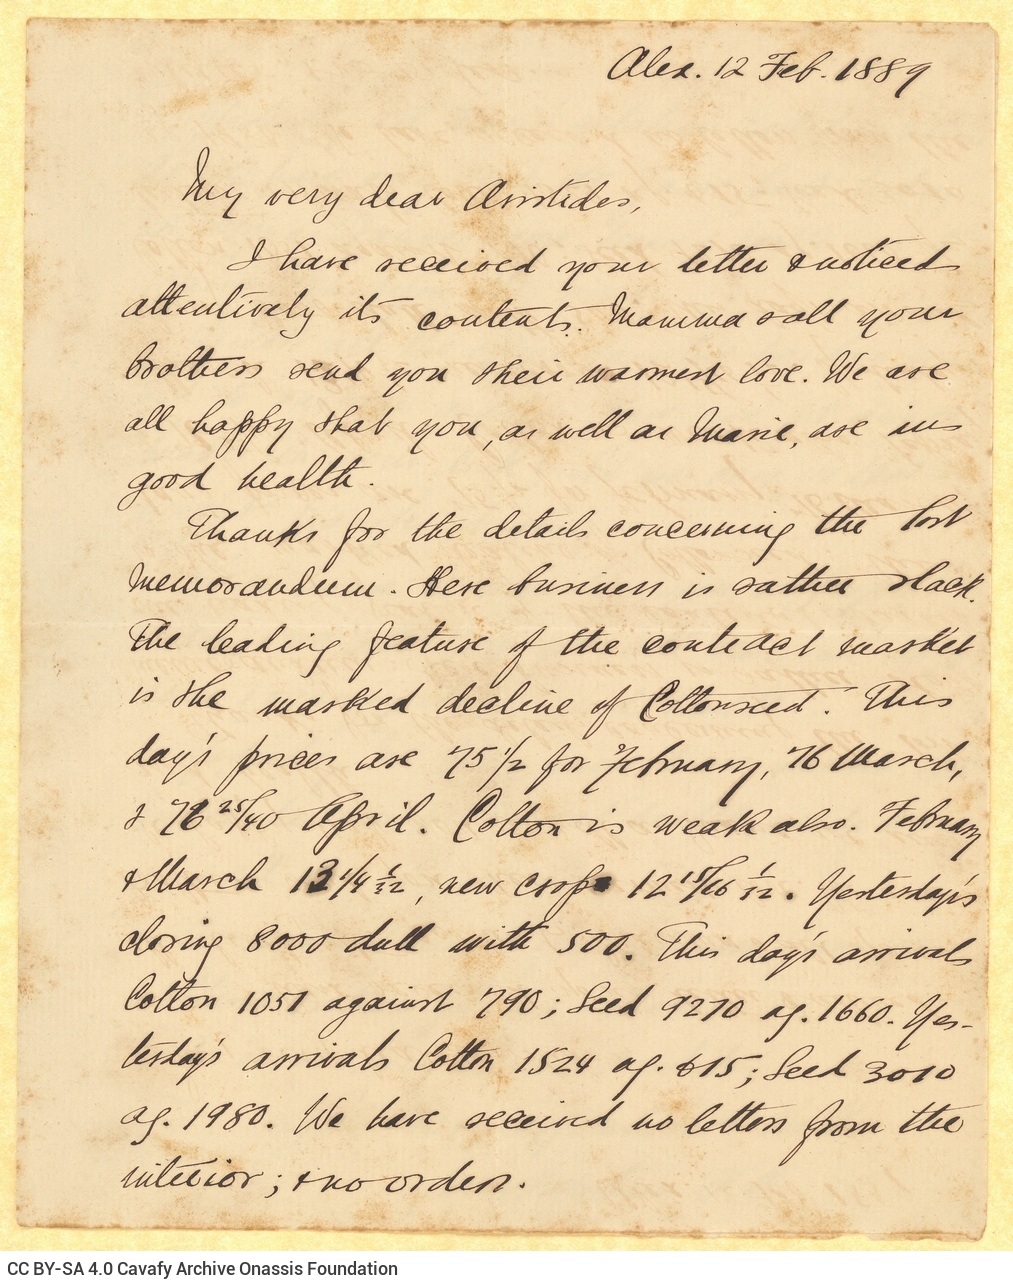 Alex. 12 Feb. 1889
My very dear Aristides,
I have received your letter & noticed
attentively its contents. Mamma & all your
brothers send you their warmest love. We are
all happy that you, as well as Marie, are in
good health.
Thanks for the details concerning the lost
memorandum. Here business is rather slack.
The leading feature of the contract market
is the marked decline of Cottonseed. This
day's prices are 75 1/2 for February, 76 March,
& 76 25/40 April. Cotton is weak also. February
& March 13 1/4 1/32, new crop 12 15/16 1/32. Yesterday's
closing 8000 dull with 500. This day's arrivals
Cotton 1051 against 790; Seed 9270 ag. 1660. Yes-
terday's arrivals Cotton 1524 ag. 615; Seed 3010
ag. 1980. We have received no letters from the
interior; & no orders.
CC BY-SA 4.0 Cavafy Archive Onassis Foundation